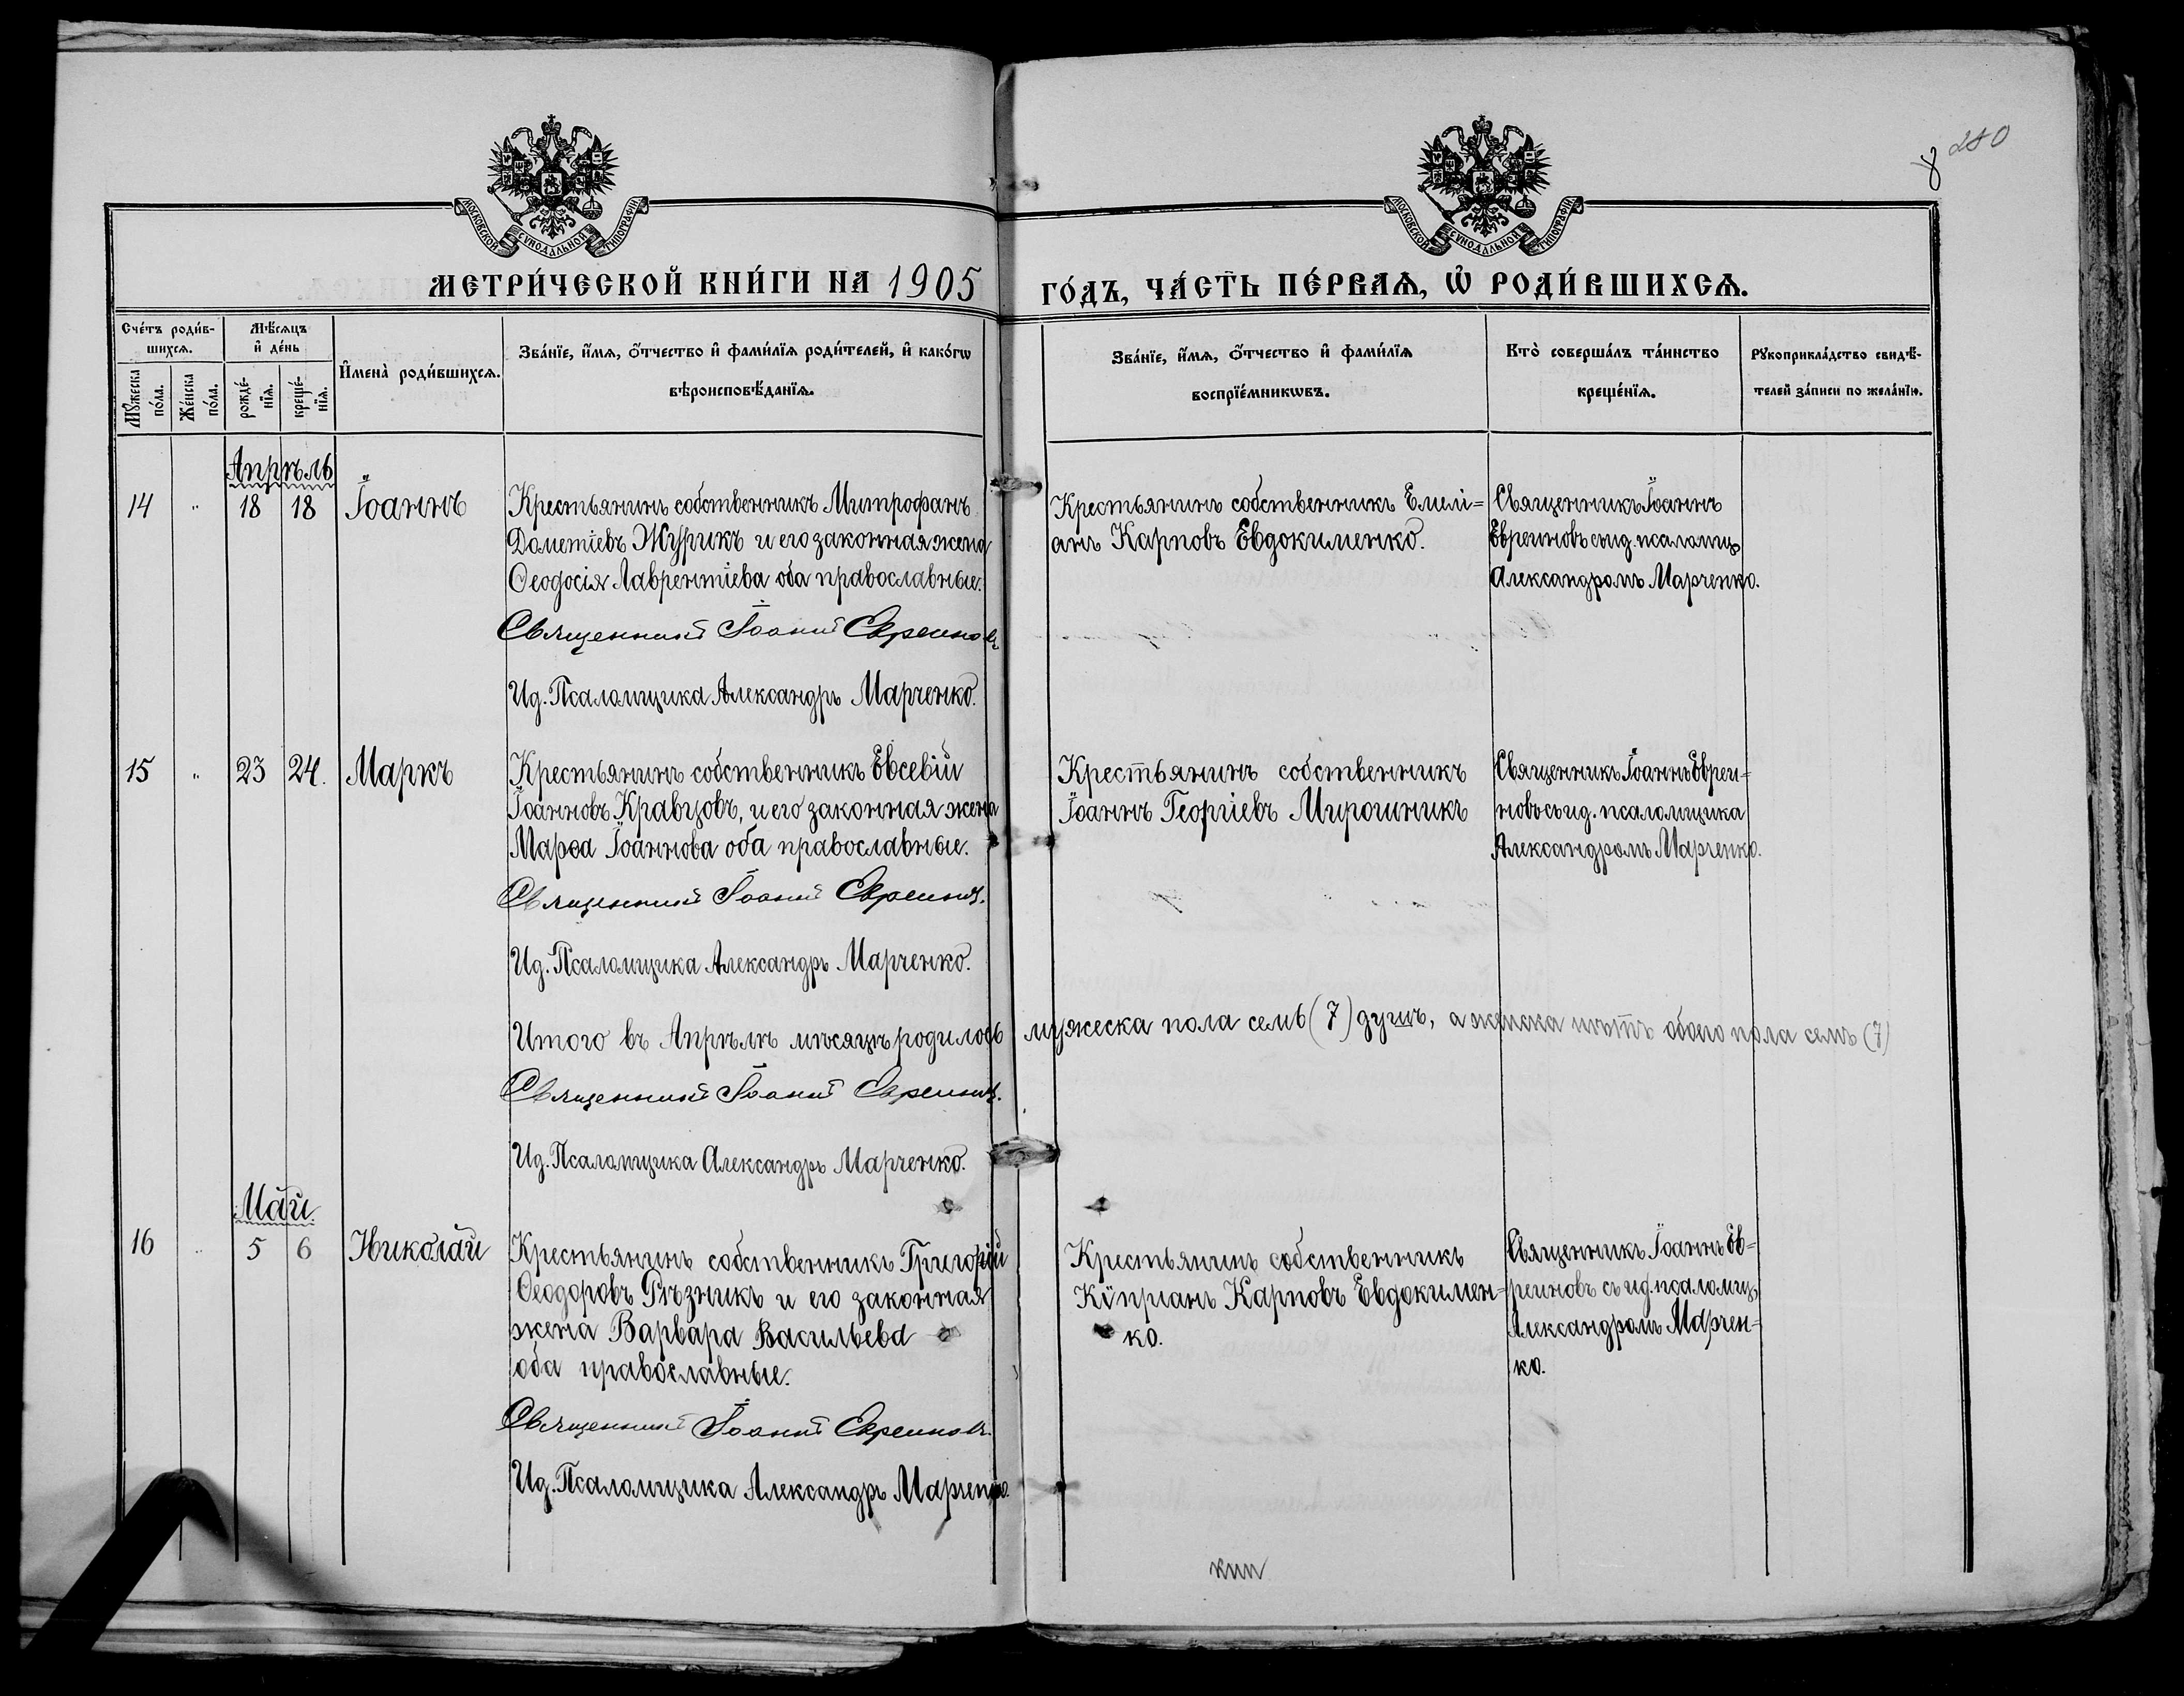 8 280
МОСКОВСКОЙ СѴНОДАЛЬНОЙ ТИПОГРАФІИ
МОСКОВСКОЙ СѴНОДАЛЬНОЙ ТИПОГРАФІИ
МЕТРИ́ЧЕСКОЙ КНИ́ГИ НА 1905 ГО́ДЪ, ЧА́СТЬ ПЕ́РВАѦ, Ѡ҆ РОДИ́ВШИХСѦ.
Сче́тъ роди́в-
шихсѧ.
Мꙋ́жеска
по́ла.
Же́нска
по́ла.
Мѣ́сѧцъ
и҆ де́нь
рожде́-
нїѧ.
креще́-
нїѧ.
И҆мена̀ роди́вшихсѧ.
Зва́нїе, и҆́мѧ, ѻ҆́тчество и҆ фами́лїѧ роди́телей, и҆ како́гѡ
вѣроисповѣ́данїѧ.
Зва́нїе, и҆́мѧ, ѻ҆́тчество и҆ фами́лїѧ
воспрїе́мникѡвъ.
Кто̀ соверша́лъ та́инство
креще́нїѧ.
Рꙋкоприкла́дство свидѣ́-
телей за́писи по жела́нїю.
Апрѣль
14 " 18 18 Іоаннъ
Крестьянинъ собственникъ Митрофанъ
Дометіевъ Журикъ и его законная жена
Ѳеодосія Лаврентіева оба православные.
Священникъ Іоаннъ Евреиновъ
Ид. Псаломщика Александръ Марченко.
Крестьянинъ собственникъ Емелі=
анъ Карповъ Евдокименко.
Священникъ Іоаннъ
Евреиновъ съ ид. псаломщ.
Александромъ Марченко.
15 " 23 24. Маркъ
Крестьянинъ собственникъ Евсевій
Іоанновъ Кравцовъ, и его законная жена
Марѳа Іоаннова оба православные.
Священникъ Іоаннъ Евреиновъ.
Ид. Псаломщика Александръ Марченко.
Крестьянинъ собственникъ
Іоаннъ Георгіевъ Мирошникъ
Священникъ Іоаннъ Евреи=
новъ съ ид. псаломщика
Александромъ Марченко.
Итого въ Апрѣлѣ мѣсяцѣ родилось мужеска пола семь (7) душъ, а женска нѣтъ обоего пола семь (7)
Священникъ Іоаннъ Евреиновъ.
Ид. Псаломщика Александръ Марченко.
Май.
16 " 5 6 Николай
Крестьянинъ собственникъ Григорій
Ѳеодоровъ Рѣзникъ и его законная
жена Варвара Васильева
оба православные.
Священникъ Іоаннъ Евреиновъ.
Ид. Псаломщика Александръ Марченко.
Крестьянинъ собственникъ
Кѵпріанъ Карповъ Евдокимен=
ко.
Священникъ Іоаннъ Ев=
реиновъ съ ид. псаломщ.
Александромъ Марчен=
ко.